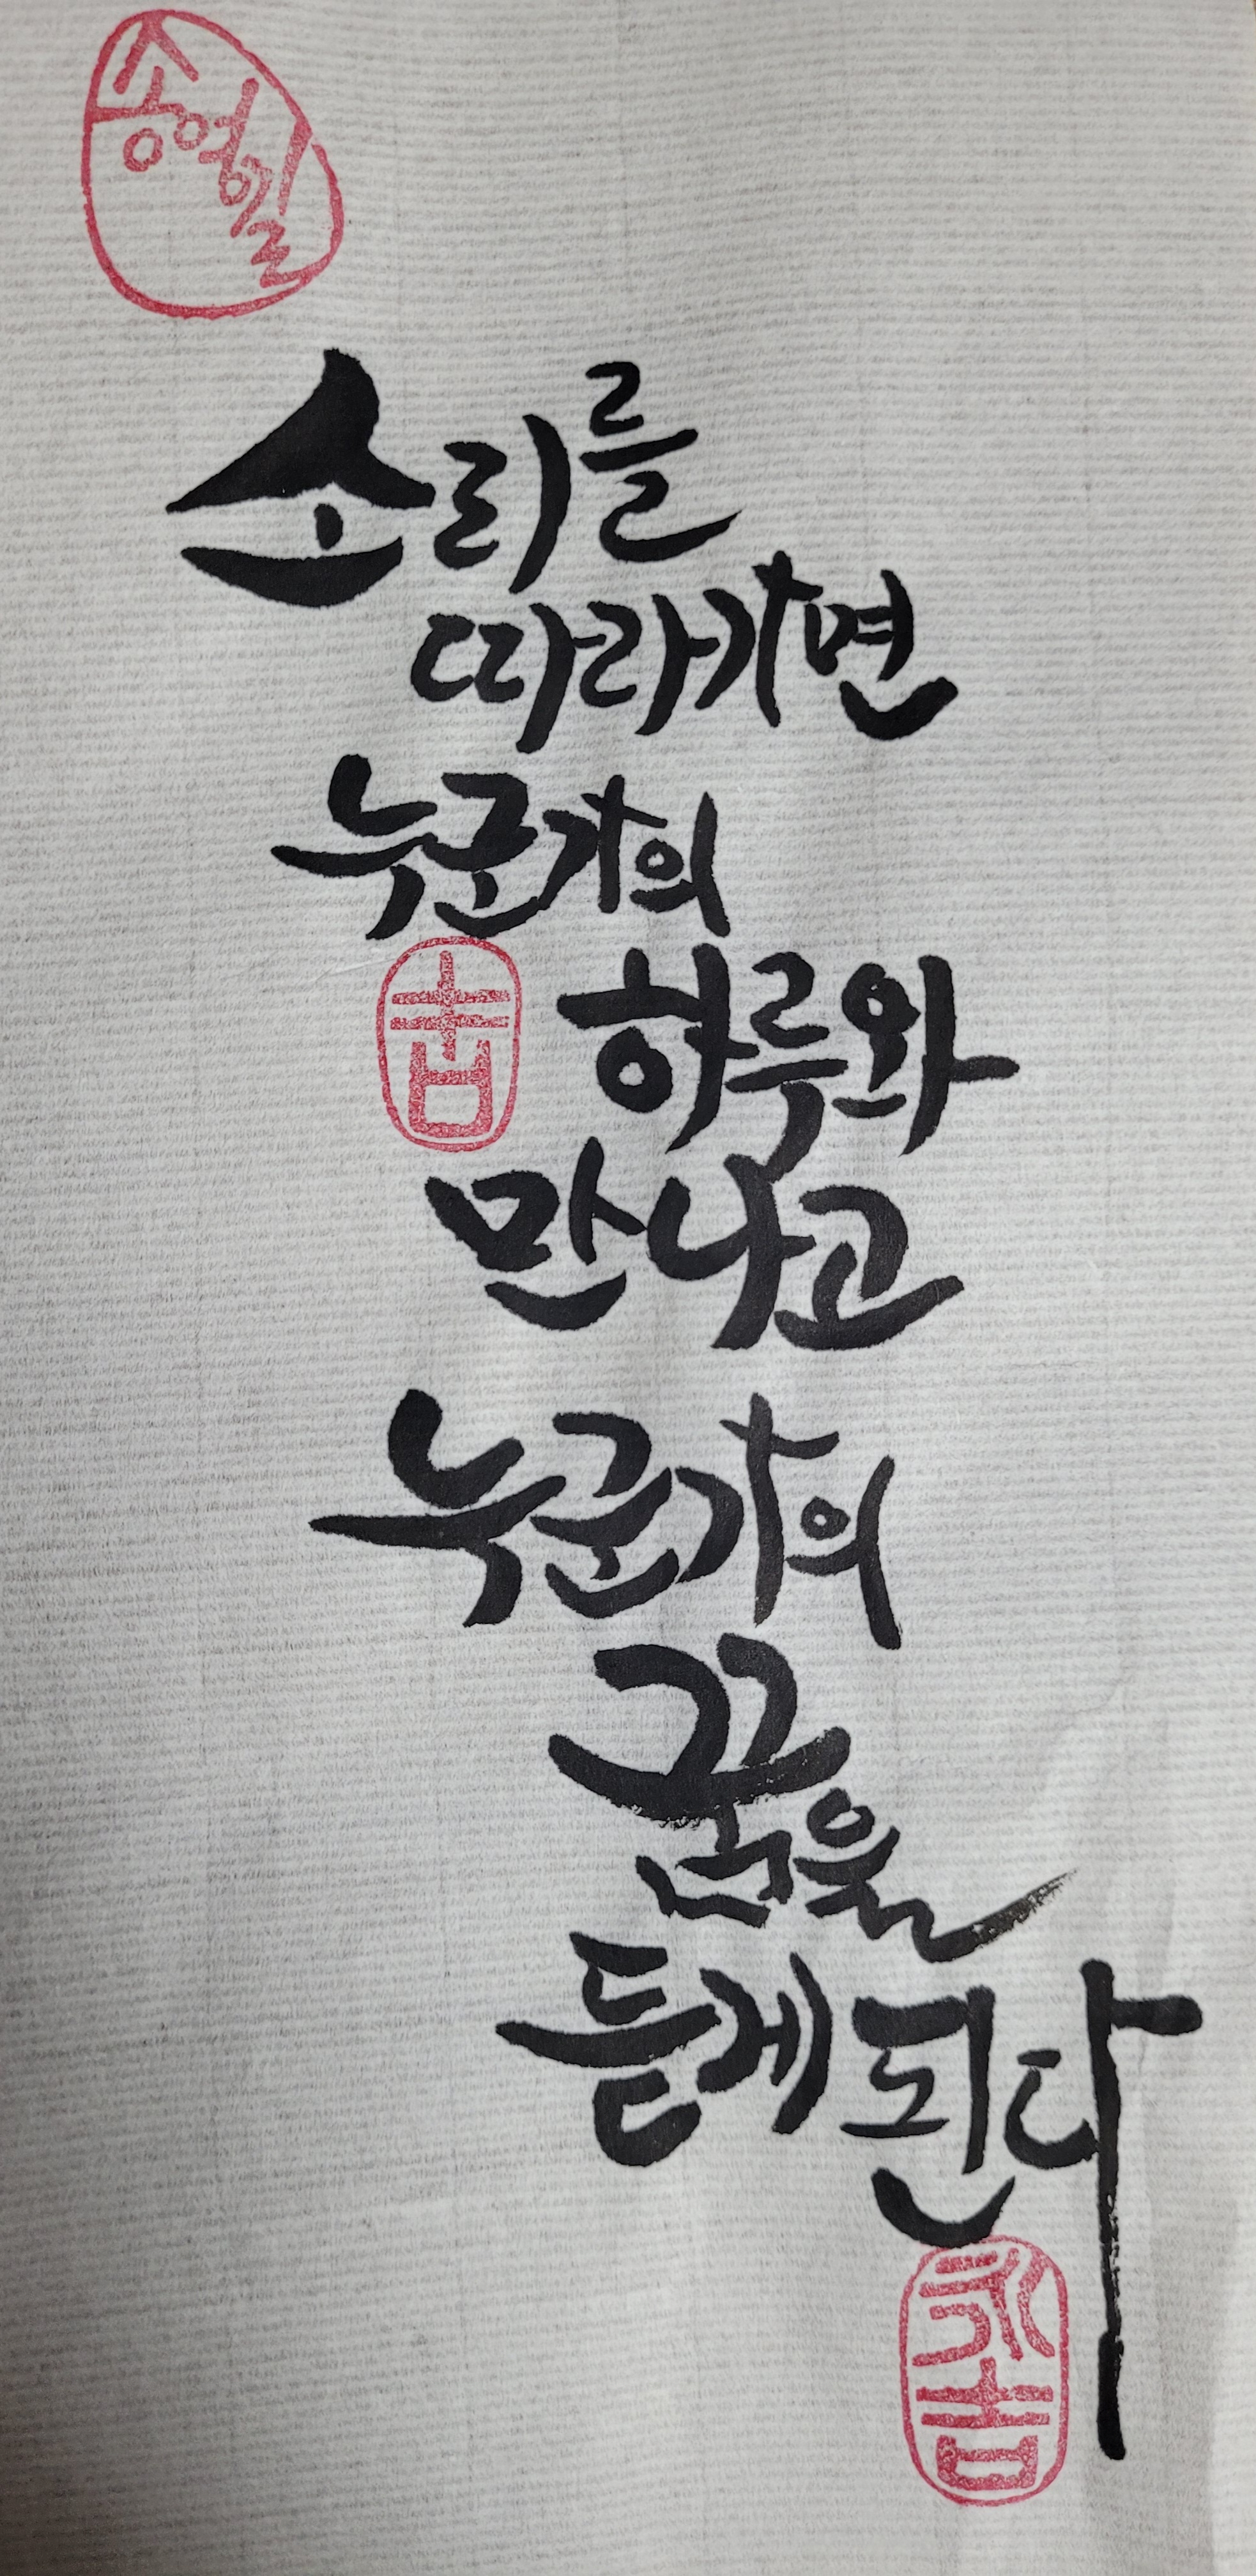 송영길
소리를
따라가면
누군가의
하루와
吉
만나고
누군가의
꿈을
듣게 된다
永吉